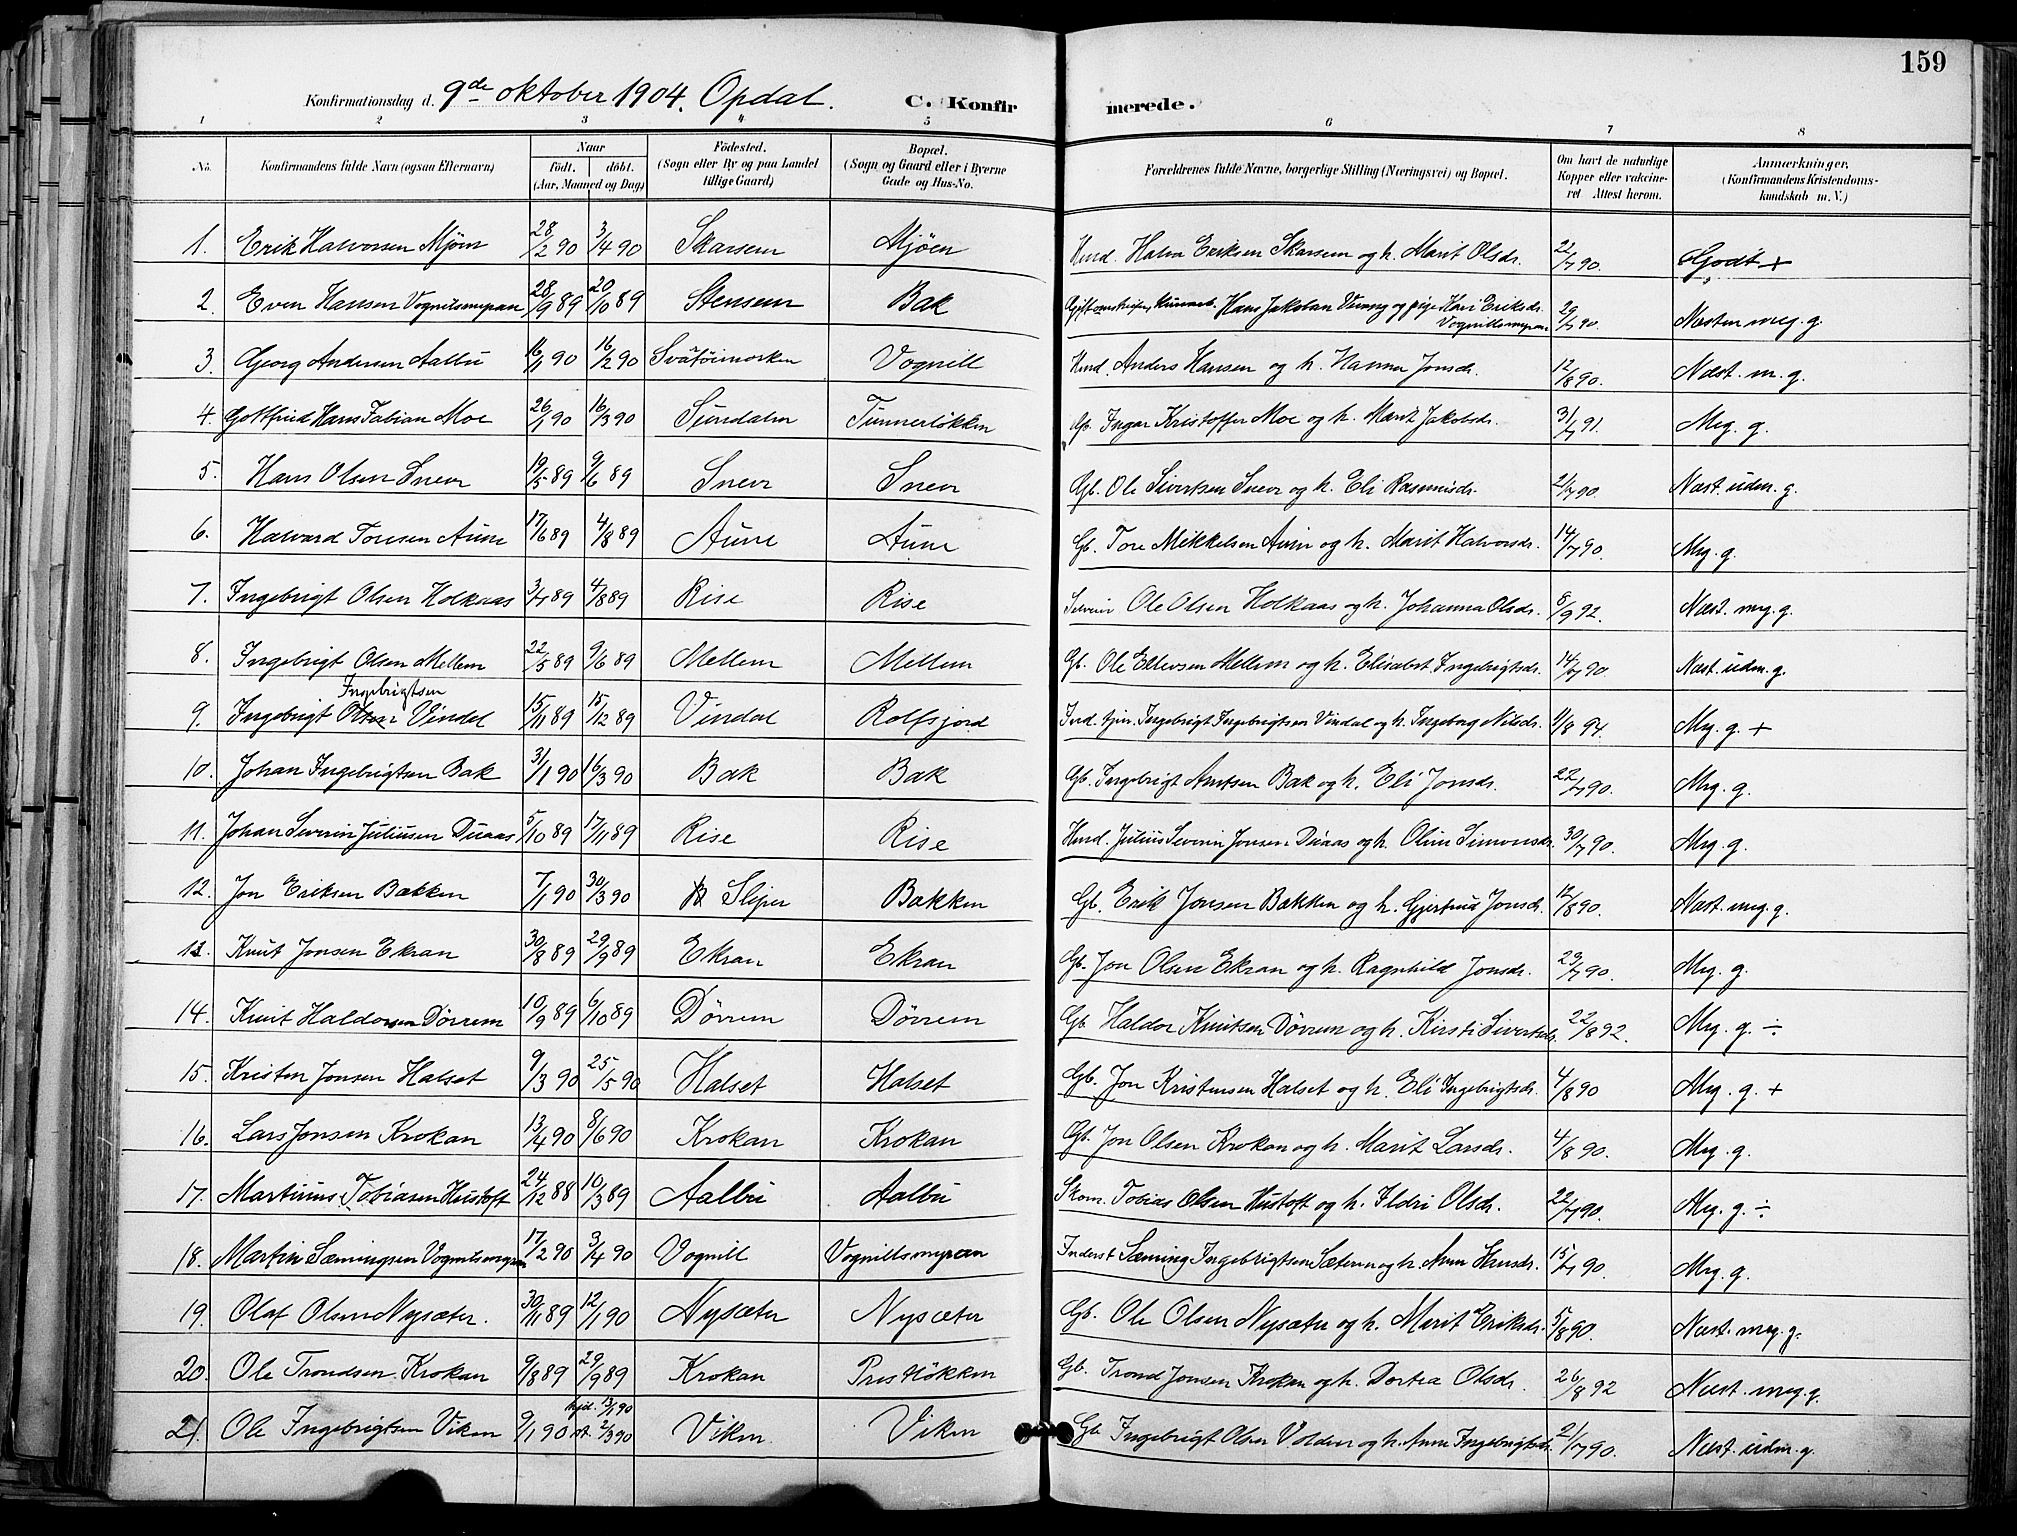 159
Konfirmationsdag d. 9de oktober 1904. Opdal. C. Konfirmerede.
1 2 3 4 5 6 7 8
No. Konfirmandens fulde Navn (ogsaa Efternavn) Naar født. døbt. (Aar, Maaned og Dag) Fødested. (Sogn eller By og paa Landet tillige Gaard) Bopæl. (Sogn og Gaard eller i Byerne Gade og Hus-No. Forældrenes fulde Navne, borgerlige Stilling (Næringsvei) og Bopæl. Om havt de naturlige Kopper eller vakcineret Attest herom. Anmærkninger. (Konfirmandens Kristendomskundskab m. V.)
1. Erik Halvorsen Mjøen 28/2 90 3/4 90 Skarsem Mjöen Hmd. Halvor Eriksen Skarsem og h. Marit Olsdr. 22/7 90. Godt +
2. Even Hansen Vognilsmyran 28/9 89 20/10 89 Stensem Bak Hans Jakobsen og pige Kari Eriksdr. Vognillsmyran 29/7 90. Næsten meg. g.
3. Georg Andersen Aalbu 16/1 90 16/2 90 Vognill Hmd. Anders Hansen og h. Hanna Jonsdr. 12/8 90. Næst. m. g.
4. Gottfried Hans Fabian Moe 26/1 90 16/3 90 Sundalen Gb. Ingar Kristoffer Moe og h. Marit Jakobsdr. 31/7 91. Meg. g.
5. Hans Olsen Snevr 19/5 89 9/6 89 Snevr Snevr Gb. Ole Sivertsen Snevr og h. Eli Rasmusdr. 21/7 90. Næst. udm. g.
6. Halvard Toresen Aune 17/6 89 4/8 89 Aune Aune Gb. Tore Mikkelsen Aune og h. Marit Halvorsdr. 14/7 90. Meg. g.
7. Ingebrigt Olsen Holkaas 3/7 89 4/8 89 Rise Rise Selveier Ole Olsen Holkaas og h. Johanna Olsdr. 8/9 92. Næst. meg. g.
8. Ingebrigt Olsen Mellem 22/5 89 9/6 89 Mellem Mellem Gb. Ole Ellevsen Mellem og h. Elisabet Ingebrigtsdr. 14/7 90 Næst. udm. g.
9. Ingebrigt Ingebrigtsen Vindal 15/11 89 15/12 89 Vindal Rolfsjord Ingebrigt Ingebrigtsen Vindal og h. Ingeborg Nilsdr. 11/8 94. Meg. g. +
10. Johan Ingebrigtsen Bak 31/1 90 16/3 90 Bak Bak Gb. Ingebrigt Arntsen Bak og h. Eli Jonsdr. 22/7 90. Meg. g.
11. Johan Severin Juliusen Duaas 5/10 89 17/11 89 Rise Rise Hmd. Julius Severin Jonsen Duaas og h. Oline Simonsdr. 30/7 90. Meg. g.
12. Jon Eriksen Bakken 7/1 90 30/3 90 Sliper Bakken Gb. Erik Jonsen Bakken og h. Gjertrud Jonsdr. 12/8 90. Næst. meg. g.
13. Knut Jonsen Ekran 30/8 89 29/9 89 Ekran Ekran Gb. Jon Olsen Ekran og h. Ragnhild Jonsdr. 29/7 90. Meg. g.
14. Knut Haldorsen Dörrem 10/9 89 6/10 89 Dörrem Dörrem Gb. Haldor Knutsen Dörrem og h. Kirsti Sivertsdr. 22/8 92. Meg. g. ÷
15. Kristen Jonsen Halset 9/3 90 25/5 90 Halset Halset Gb. Jon Kristensen Halset og h. Eli Ingebrigtsdr. 4/8 90 Meg. g. +
16. Lars Jonsen Krokan 13/4 90 8/6 90 Krokan Krokan Gb. Jon Olsen Krokan og h. Marit Larsdr. 4/8 90. Meg. g.
17. Martinus Tobiasen Hustoft 24/12 88 10/3 89 Aalbu Aalbu Skom. Tobias Olsen Hustoft og h. Ildri Olsdr. 22/7 90. Meg. g. ÷
18. Martin Sæmingsen Vognilsmyran 17/2 90 3/4 90 Vognill Vognillsmyran Inderst Sæming Ingebrigtsen Sæteren og h. Anne Hansdr. 15/7 90. Meg. g.
19. Olaf Olsen Nysæter. 30/11 89 12/1 90 Nysæter Nysæter Gb. Ole Olsen Nysæter og h. Marit Eriksdr. 5/8 90. Næst. meg. g.
20. Ole Trondsen Krokan 9/8 89 29/9 89 Krokan Presthökken Gb. Trond Jonsen Krokan og h. Dortea Olsdr. 26/8 92 Næst. meg. g.
21. Ole Ingebrigtsen Viken 9/1 90 hjd. 13/1 90 st. 2/3 90 Viken Viken Gb. Ingebrigt Olsen Volden og h. Anne Ingebrigtsdr. 21/7 90. Næst. udm. g.